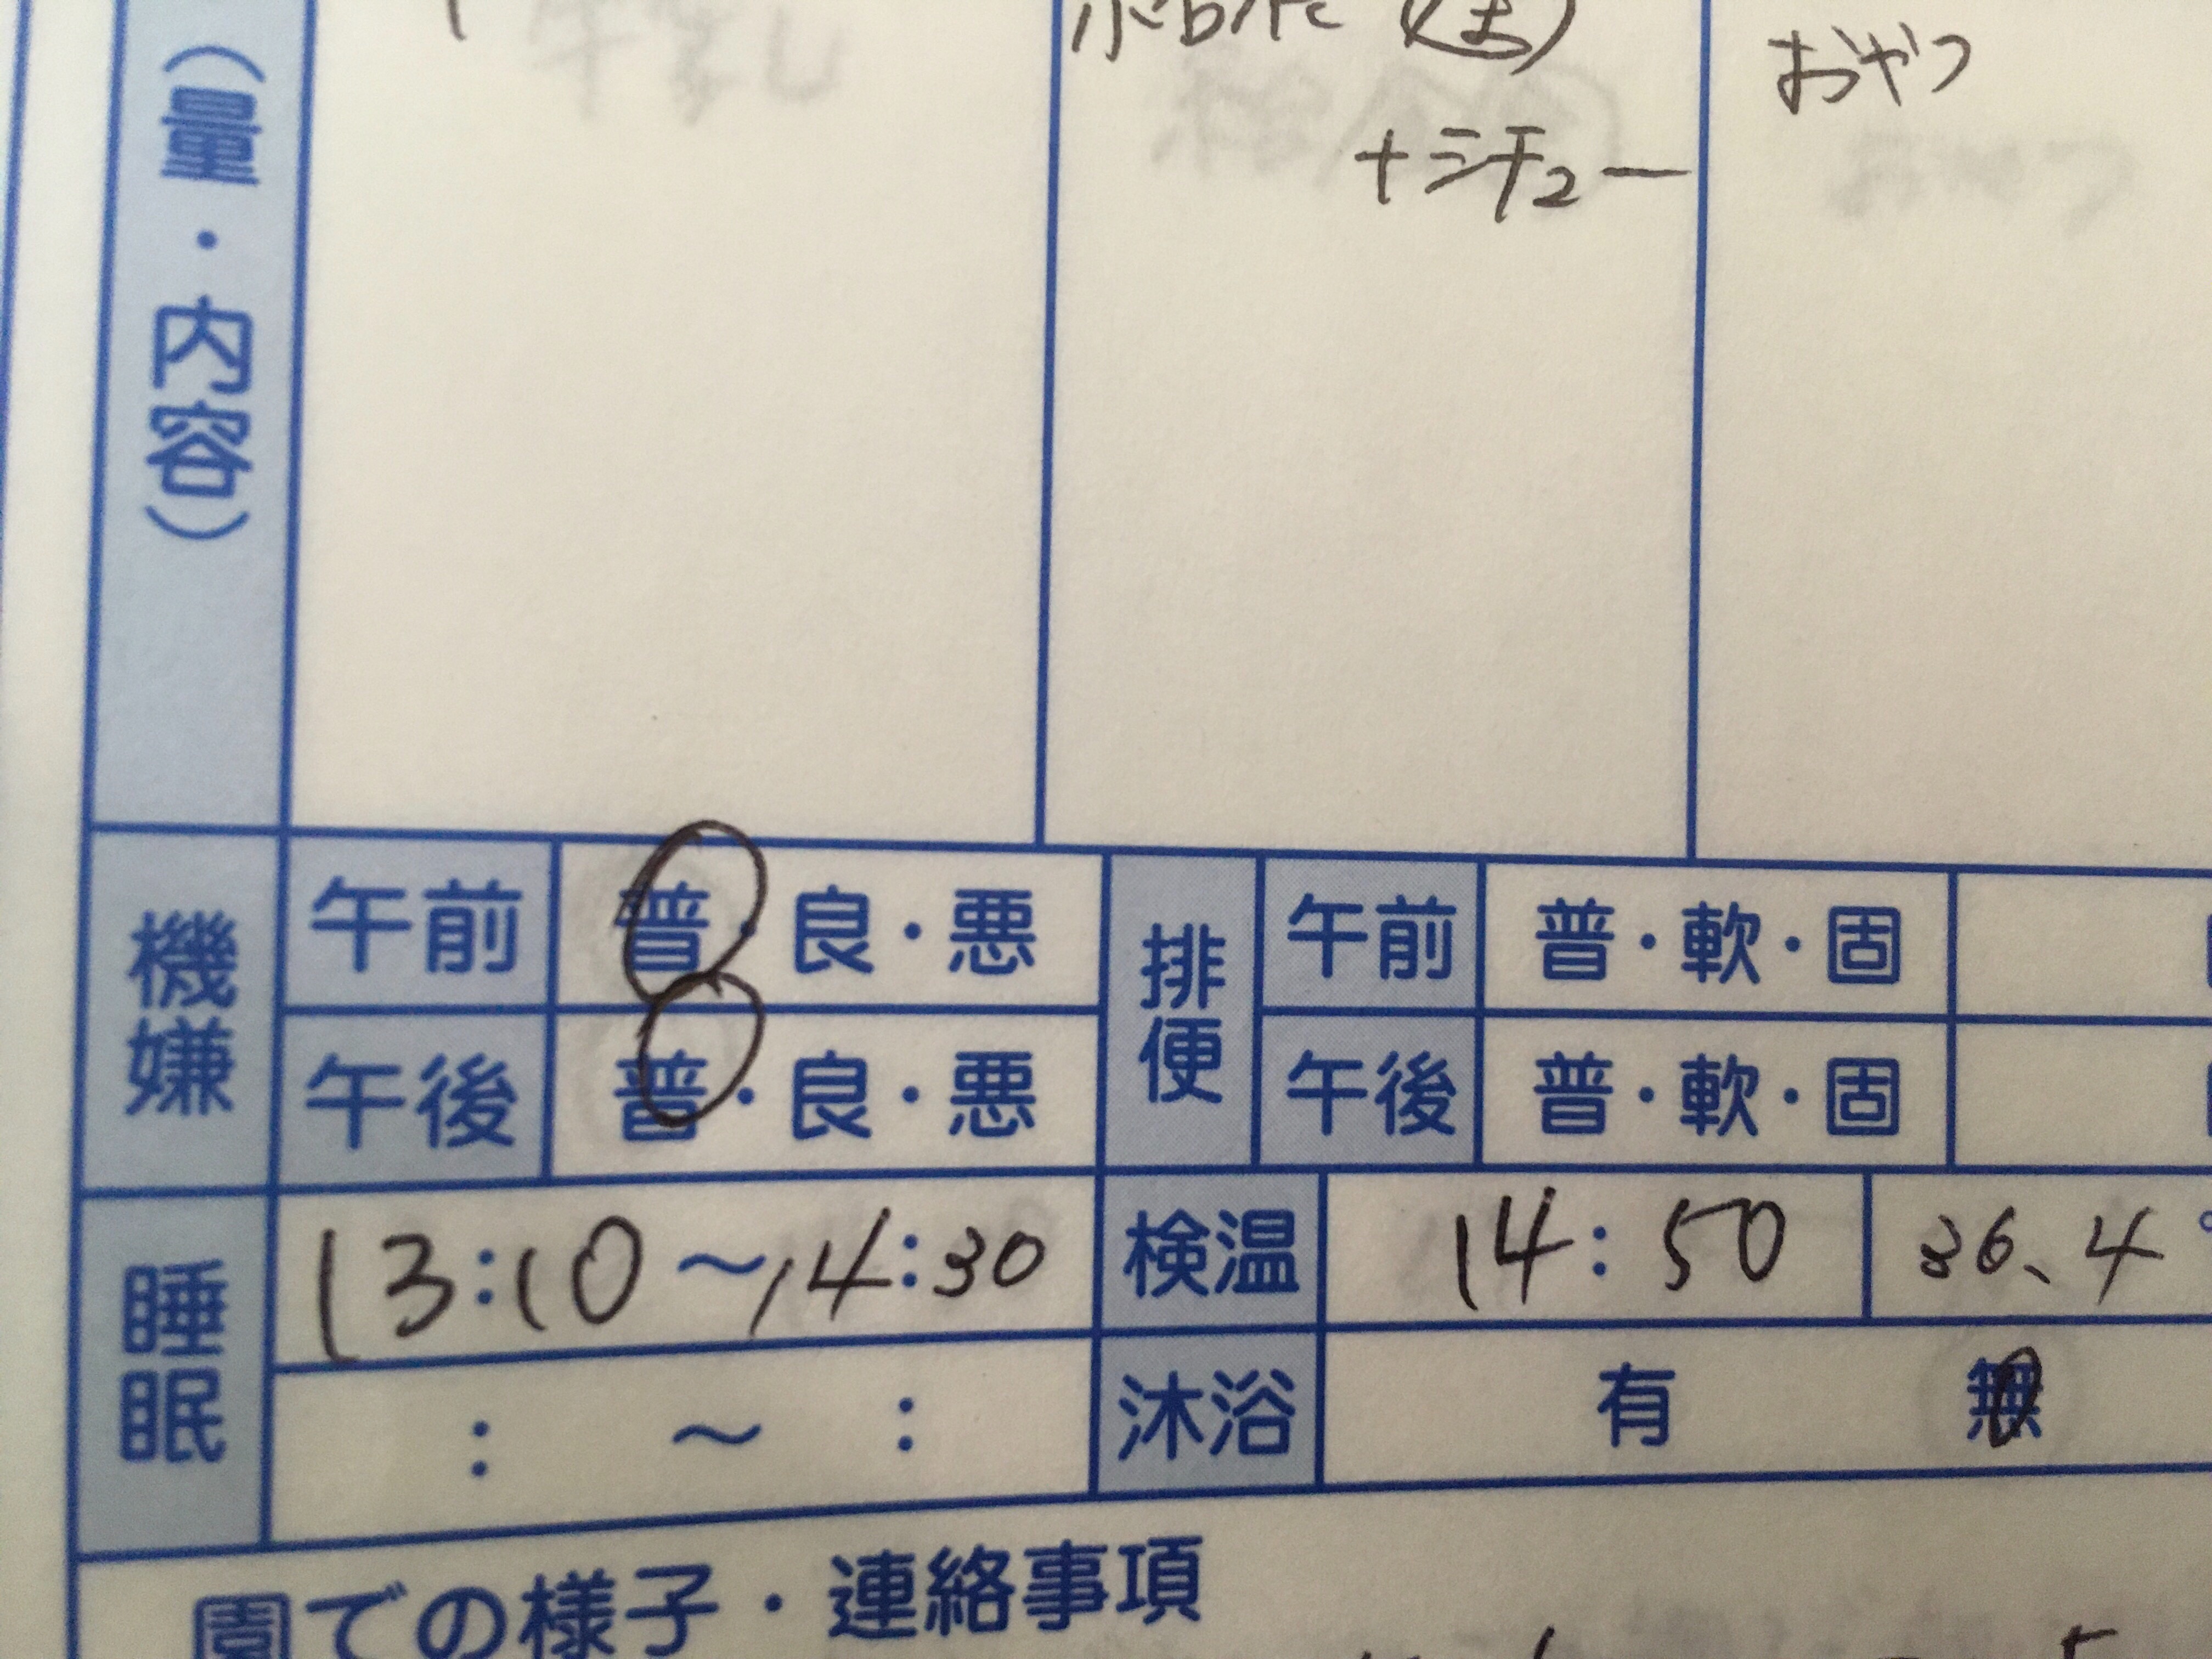 （量・内容）
おやつ
+シチュー
機嫌
午前 普・良・悪
午後 普・良・悪
排便
午前 普・軟・固
午後 普・軟・固
睡眠
13:10〜14:30
: 〜 :
検温 14:50 36.4°
沐浴 有 無
園での様子・連絡事項